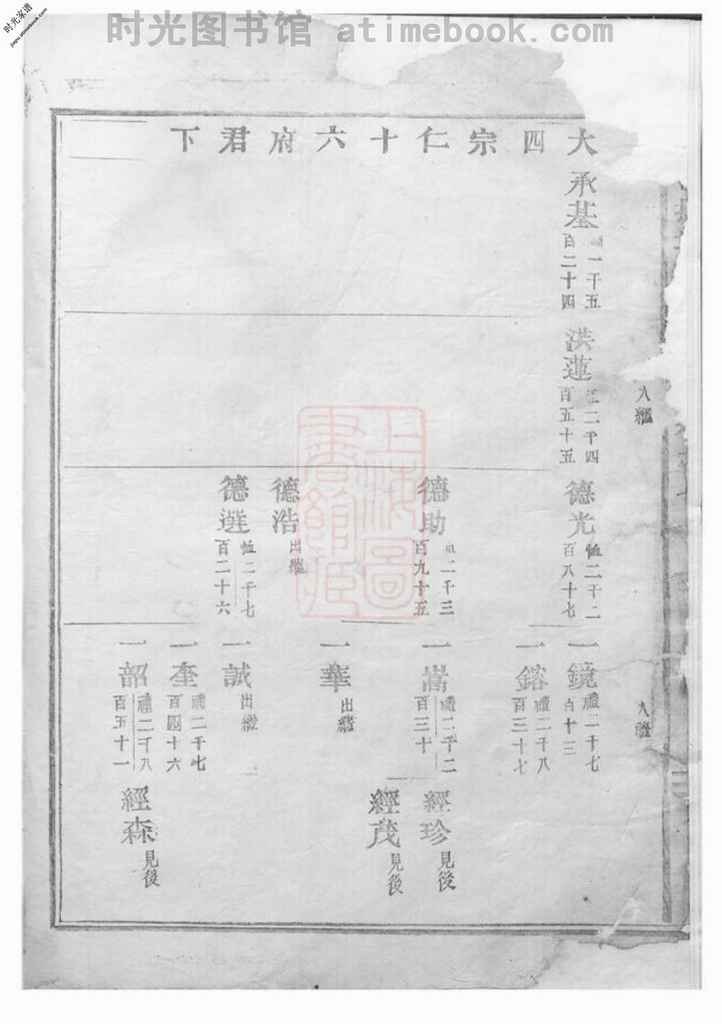 时光图书馆 atimebook.com
时光家谱
大四宗仁十六府君下
承基
一千五
百二十四
洪蓮
二千四
百五十五
德光
恤二千二
百八十七
德助
二千三
百九十五
德浩
出繼
德選
恤二千七
百二十六
一鏡
禮二千七
百十三
一鎔
禮二千八
百三十七
一嵩
禮二千二
百三十
一華
出繼
一誠
出繼
一奎
禮二千七
百四十六
一韶
禮二千八
百五十一
經珍
見後
經茂
見後
經森
見後
入繼
入繼
上海圖書館藏